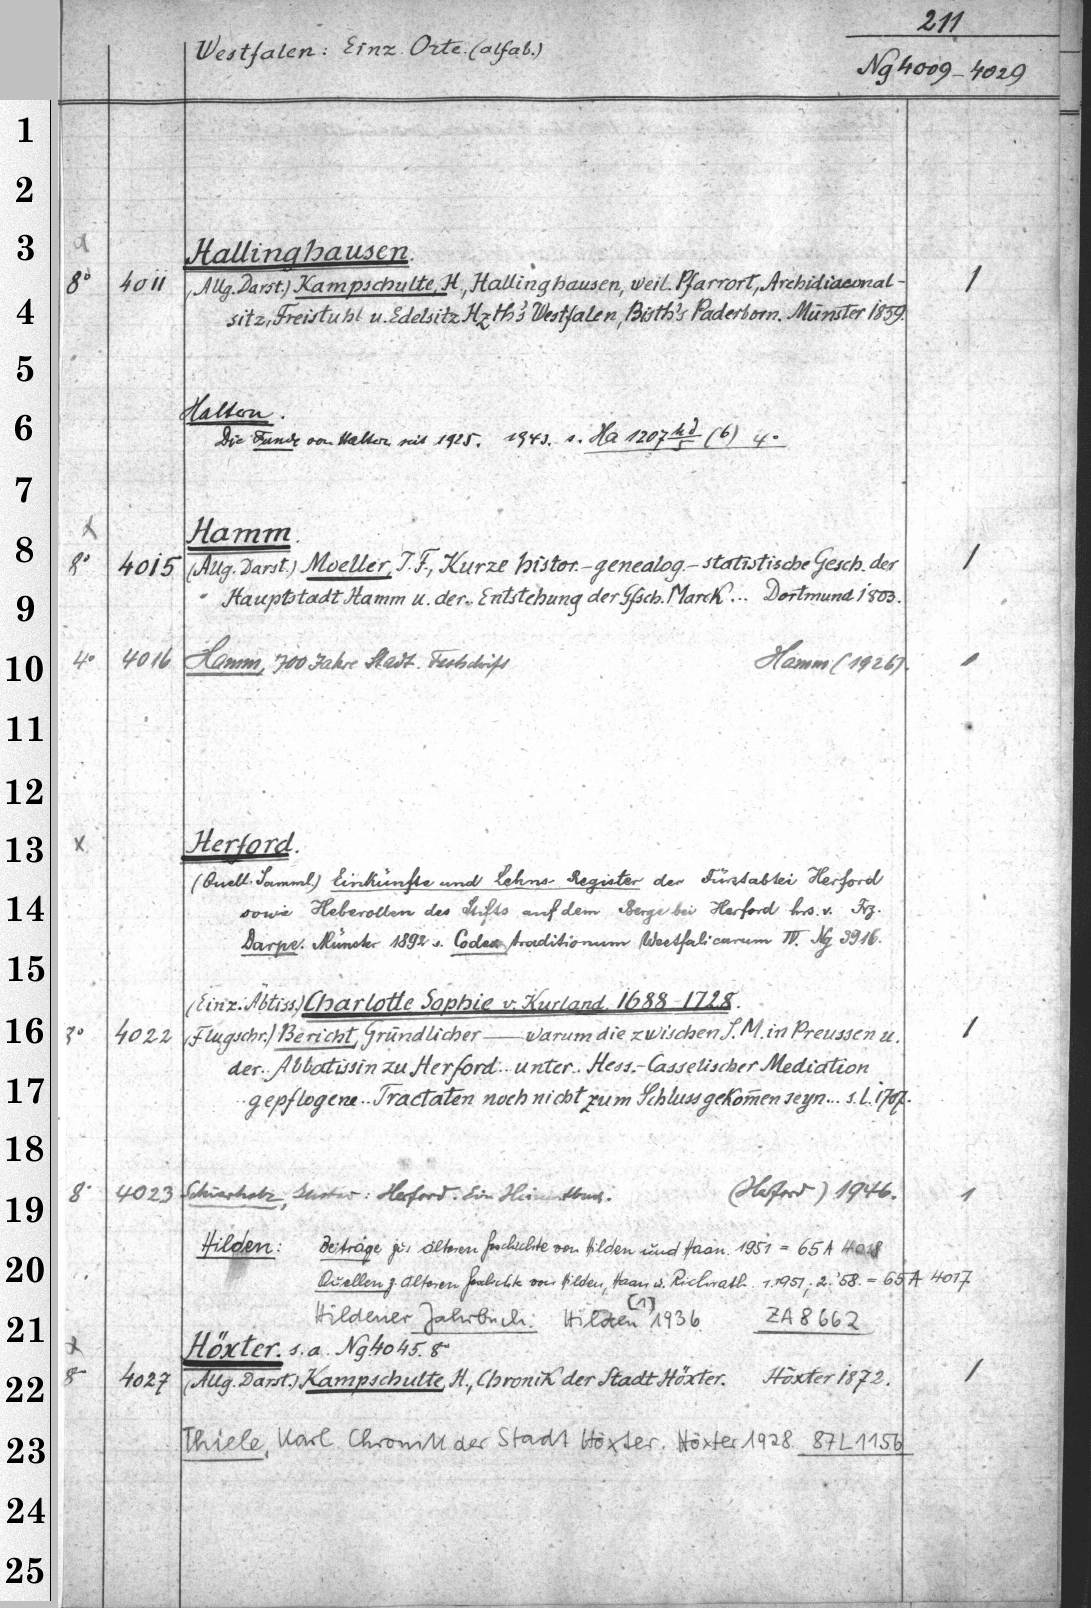 211
Westfalen: Einz. Orte. (alfab.)
Ng 4009-4029
1
2
3
Hallinghausen.
8° 4011 (Allg. Darst.) Kampschulte, H., Hallinghausen, weil. Pfarrort, Archidiaconal- 1
4 sitz, Freistuhl u. Edelsitz Hzth's Westfalen, Bisth's Paderborn. Münster 1859.
5
Haltern.
6 Die Funde von Haltern seit 1925. 1943. s. Ha 1207 (6) 4°
7
x Hamm.
8
8° 4015 (Allg. Darst.) Moeller, J. F., Kurze histor.-genealog.-statistische Gesch. der 1
9 Hauptstadt Hamm u. der.. Entstehung der Gfsch. Marck... Dortmund 1803.
10 4° 4016 Hamm, 700 Jahre Stadt. Festschrift Hamm (1926).
11
12
13 x Herford.
(Quell. Samml.) Einkünfte und Lehns-Register der Fürstabtei Herford
14 sowie Heberollen des Stifts auf dem Berge bei Herford hrs. v. Frz.
Darpe. Münster 1892 s. Codex traditionum Westfalicarum IV. Ng 3916.
15
(Einz. Äbtiss.) Charlotte Sophie v. Kurland. 1688-1728.
16 4022 (Flugschr.) Bericht, Gründlicher — warum die zwischen S. M. in Preussen u. 1
der.. Abbatissin zu Herford.. unter.. Hess.-Casselischer Mediation
17 ..gepflogene.. Tractaten noch nicht zum Schluss gekom̄en seyn... s. l. 1707.
18
19 8° 4023 Schierholz, Gustav: Herford. Ein Heimatbuch. (Herford) 1946. 1
Hilden: Beiträge zur älteren Geschichte von Hilden und Haan. 1951 = 65 A 4018
20 Quellen z. älteren Geschichte von Hilden, Haan u. Richrath. 1. 1951; 2. '58. = 65 A 4017
21 Hildener Jahrbuch. Hilden [1] 1936 ZA 8662
x Höxter. s. a. Ng 4045. 8°
22 8° 4027 (Allg. Darst.) Kampschulte, H., Chronik der Stadt Höxter. Höxter 1872. 1
23 Thiele, Karl Chronik der Stadt Höxter. Höxter 1928 87 L 1156
24
25